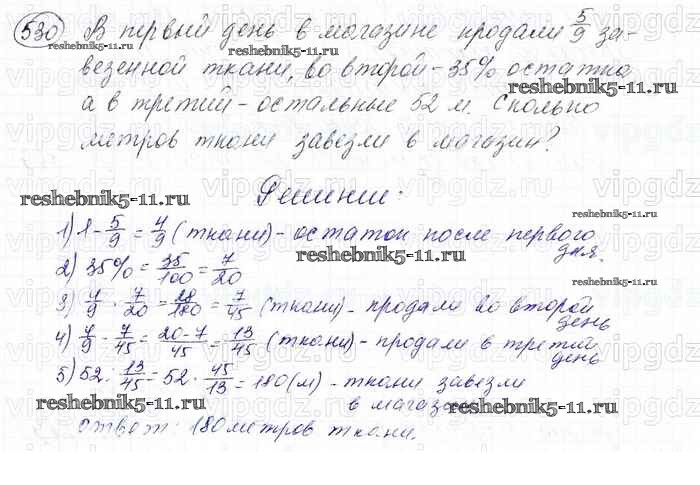 530 В первый день в магазине продали 5/9 за-
везенной ткани, во второй - 35% остатка,
а в третий - остальные 52 м. Сколько
метров ткани завезли в магазин?
Решение:
1) 1 - 5/9 = 4/9 (ткани) - остаток после первого
дня.
2) 35% = 35/100 = 7/20
3) 4/9 · 7/20 = 28/180 = 7/45 (ткани) - продали во второй
день
4) 4/9 - 7/45 = 20-7/45 = 13/45 (ткани) - продали в третий
день
5) 52 : 13/45 = 52 · 45/13 = 180 (м) - ткани завезли
в магазин
ответ: 180 метров ткани.
reshebnik5-11.ru
reshebnik5-11.ru
reshebnik5-11.ru
reshebnik5-11.ru
reshebnik5-11.ru
reshebnik5-11.ru
reshebnik5-11.ru
vipgdz